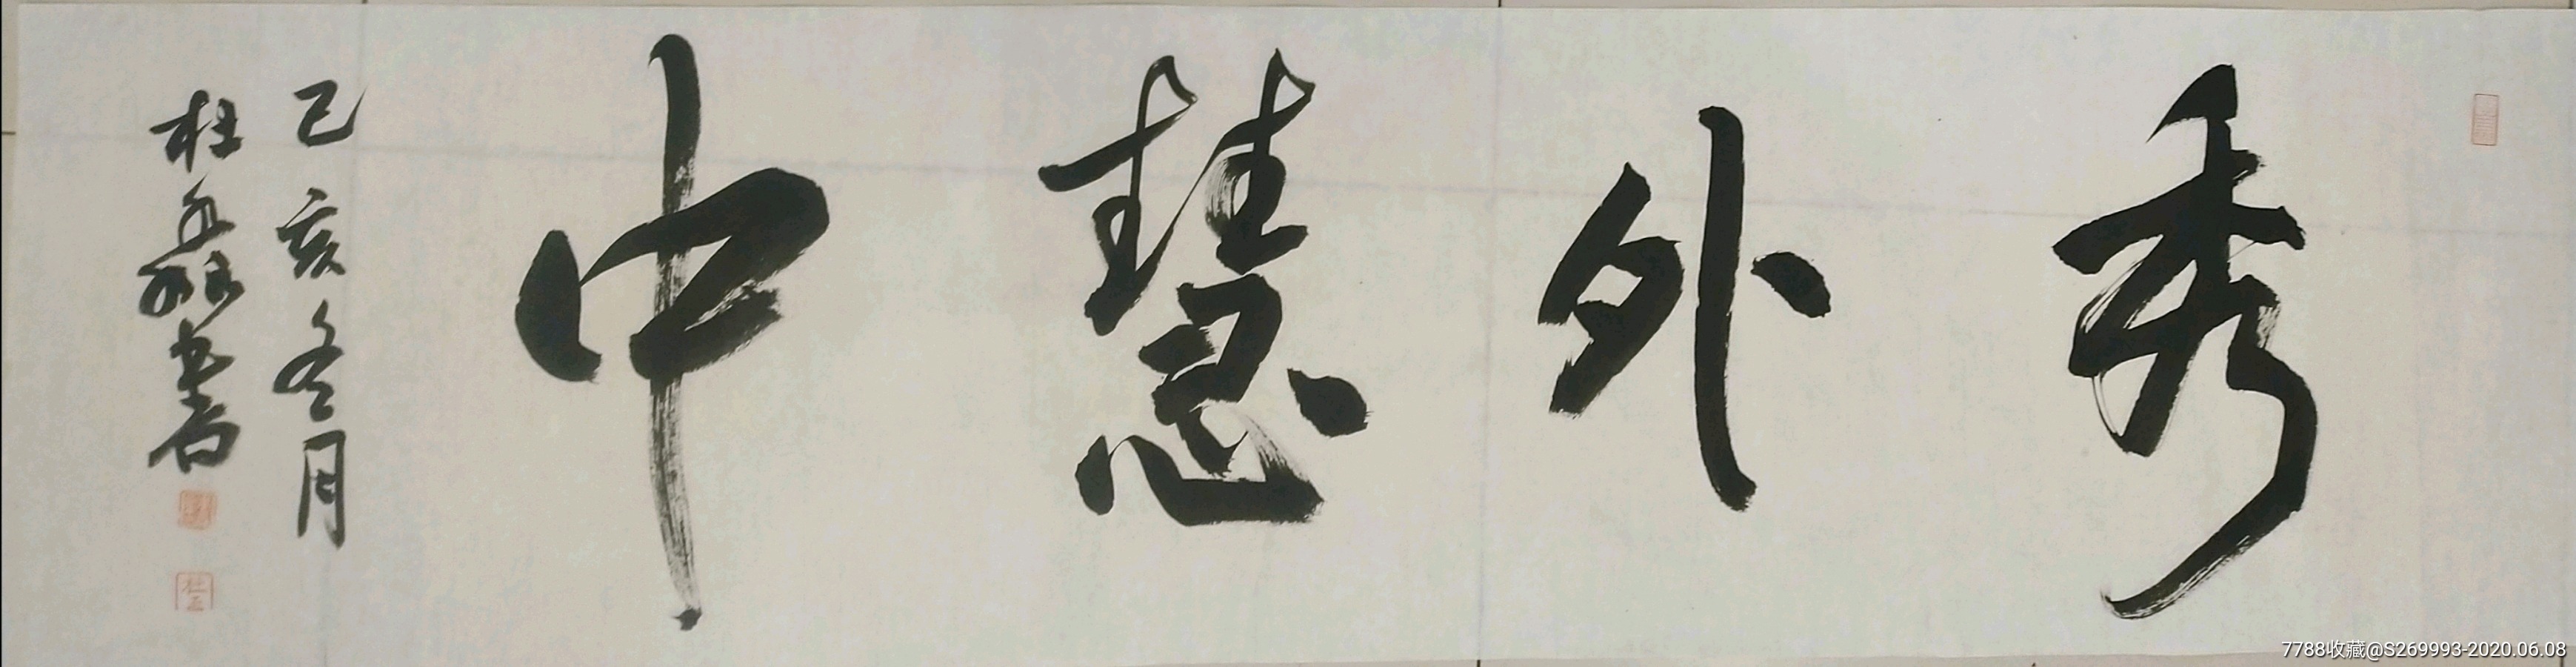 秀外慧中
己亥冬月
杜
書
7788收藏@S269993-2020.06.08